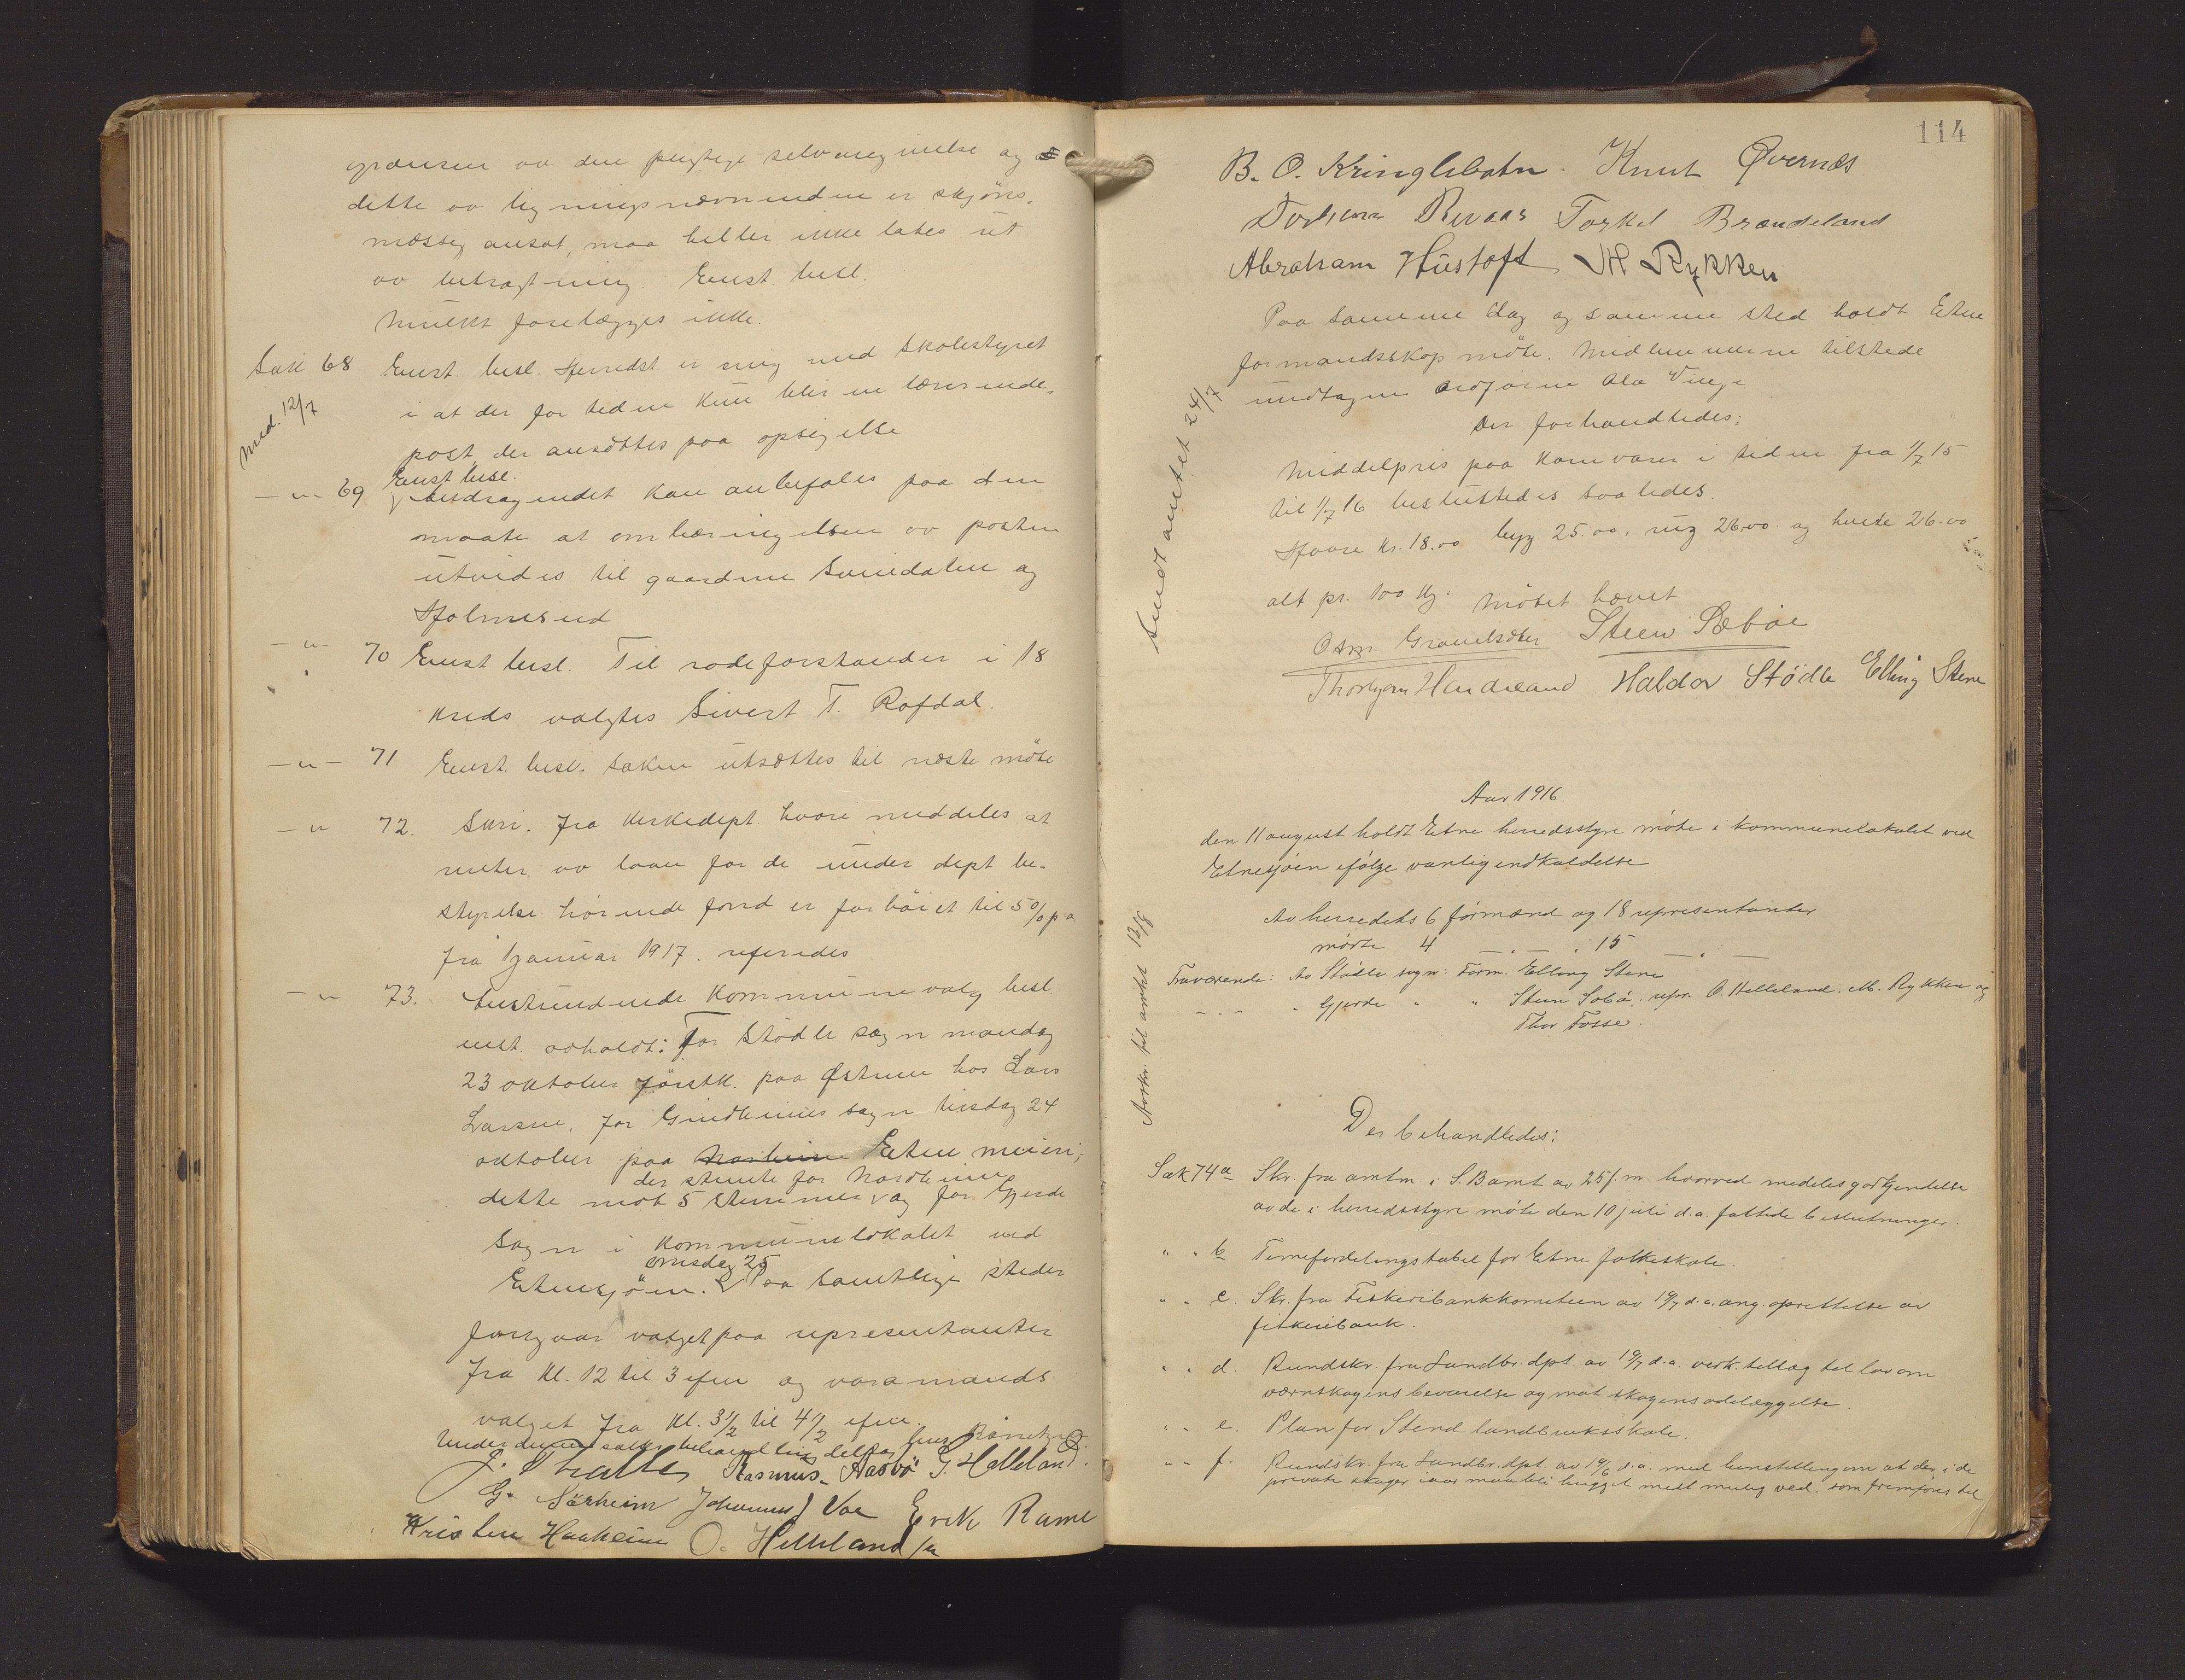 grænsen av den pligtige selvangivelse og
dette av ligningsnævnenden er skjøns-
mæssig ansat, maa heller ikke lates ut
av betragtning. Enst. besl.
Mulkt forelægges ikke.
Sak 68 Enst. besl. Herredst. er enig med skolestyret
i at der for tiden kun blir en lærerinde-
post, der ansættes paa opsigelse
Med. 12/7
Enst besl.
-"- 69 andragendet kan anbefales paa den
maate at ombæringen av posten
utvides til gaardene Sunndalen og
Holmesud
-"- 70 Enst besl. Til rodeforstander i 18
kreds valgtes Sivert T. Røfdal.
-"- 71 Enst. besl. Saken utsættes til næste møte
-"- 72. Skri. fra Kirkedept. hvori meddeles at
renter av laan for de under dept be-
styrelse hørende fond er forhøiet til 5% p a
fra 1 januar 1917. referedes
-"- 73. Tilstundende kommunevalg besl.
enst. avholdt: For Stødle sogn mandag
23 oktober førstk. paa Østreim hos Lars
Larsen, for Grindheims sogn tirsdag 24
oktober paa Nordheim Etne meieri;
der stemte for Nordheim
dette mot 5 stemmer, og for Gjerde
sogn i kommunelokalet ved
onsdag 25
Etnesjøen. Paa samtlige steder
foregaar valget paa representanter
fra kl. 12 til 3 efm og varamands
valget fra kl. 3½ til 4½ efm.
Under denne saks behandling deltog
Rasmus Aasbø G. Helleland.
G. Sørheim Johannes J Vae Erik Rame
Kristen Haaheim O. Helleland
114
B. O. Kringlebotn. Knut Øvernes
Torkel Brandeland
Abraham Hustoft M Rykken
Paa samme dag og samme sted holdt Etne
formandsskap møte. Medlemmerne tilstede
undtagen ordførerne Ola Vinje
Der forhandledes;
Middelpris paa kornvarer i tiden fra 1/7 15
til 1/7 16 besluttedes saaledes.
Havre kr. 18.00 byg 25.00, rug 26.00 og hvete 26.00
alt pr. 100 kg. Møtet hævet
Osm. Steen Sæbøe
Haldor Stødle Elling Stene
Sendt amtet 24/7
Aar 1916
den 11 august holdt Etne herredsstyre møte i kommunelokalet ved
Etnesjøen ifølge vanlig indkaldelse
Av herredets 6 formænd og 18 representanter
møtte 4 -"- 15 -"-
Fraværende: Av Stødle sogn: Form. Elling Stene
-"- " Gjerde " " Steen Sæbø. repr. O Helleland. M. Rykken og
Thor Fosse.
Avskr. til amtet 13/8
Der behandledes:
Sak 74 a Skr. fra amtm. i S. B amt av 25 f. m. hvorved medeles godkjendelse
av de i herredsstyre møte den 10 juli d.a. fattede beslutninger.
" " b Timefordelingstabel for Etne folkeskole.
" " c. Skr. fra Fiskeribankkomiteen av 19/7 d.a. ang. oprettelse av
fiskeribank.
" " d. Rundskr. fra Landbr. dpt. av 19/7 d.a. vedk. tillæg til lov om
værnskogens bevarelse og mot skogens ødelæggelse.
" " e. Plan for Stend landbruksskole.
" " f. Rundskr. fra Landbr. dpt. av 19/6 d.a. med henstilling om at der i de
private skoger iaar maa bli hugget mest mulig ved. som fremføres til